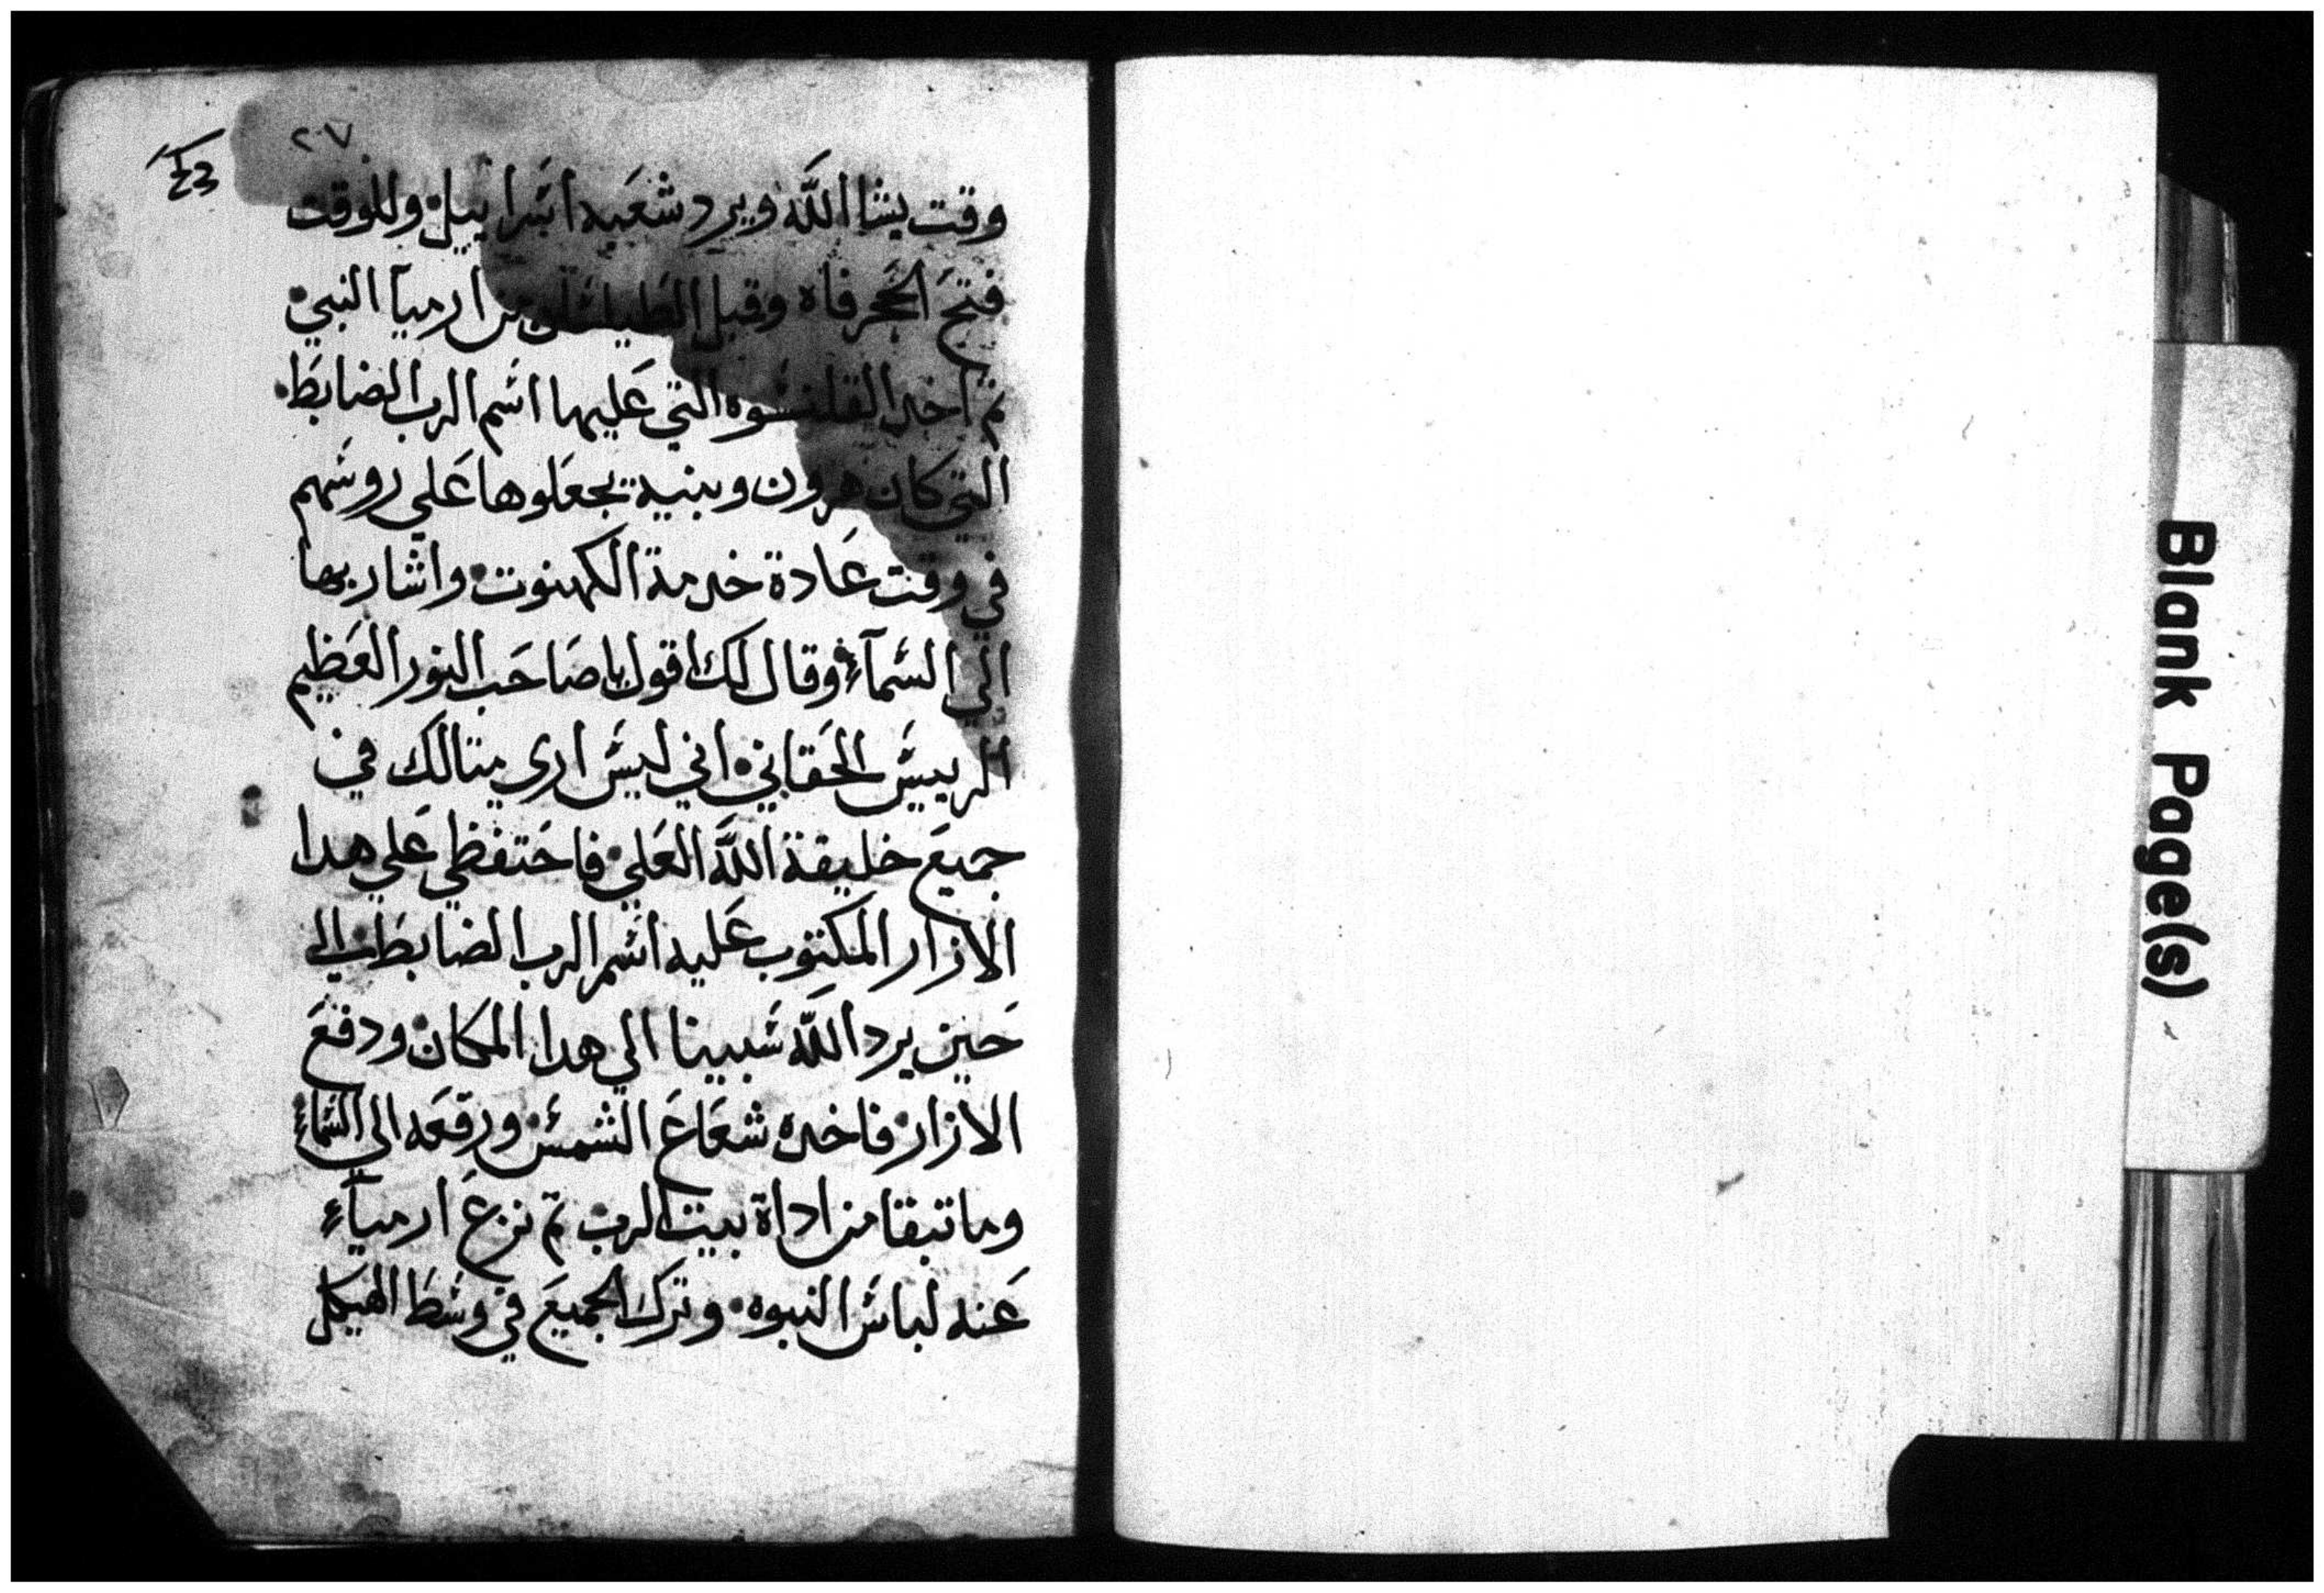 ٢٠٧
وقت يشا الله ويرد شعبه اسراييل وللوقت
فتح الحجر فاه وقبل الطيلسان من ارميا النبي
تم اخد القلنسوه التي عليها اسم الرب الضابط
التي كان هرون وبنيه يجعلوها علي روسهم
في وقت عادة خدمة الكهنوت واشار بها
الي السمآء وقال لك اقول يا صاحب النور العظيم
الرييس الحقاني اني ليس اري متالك في
جميع خليقة الله العلي فاحتفظي علي هدا
الازار المكتوب عليه اسم الرب الضابط الي
حين يرد الله سبينا الي هدا المكان ودفع
الازار فاخده شعاع الشمس ورفعه الي السمآء
وما تبقا من اداة بيت الرب تم نزع ارميآء
عنه لباس النبوه وترك الجميع في وسط الهيكل
Blank Page(s)